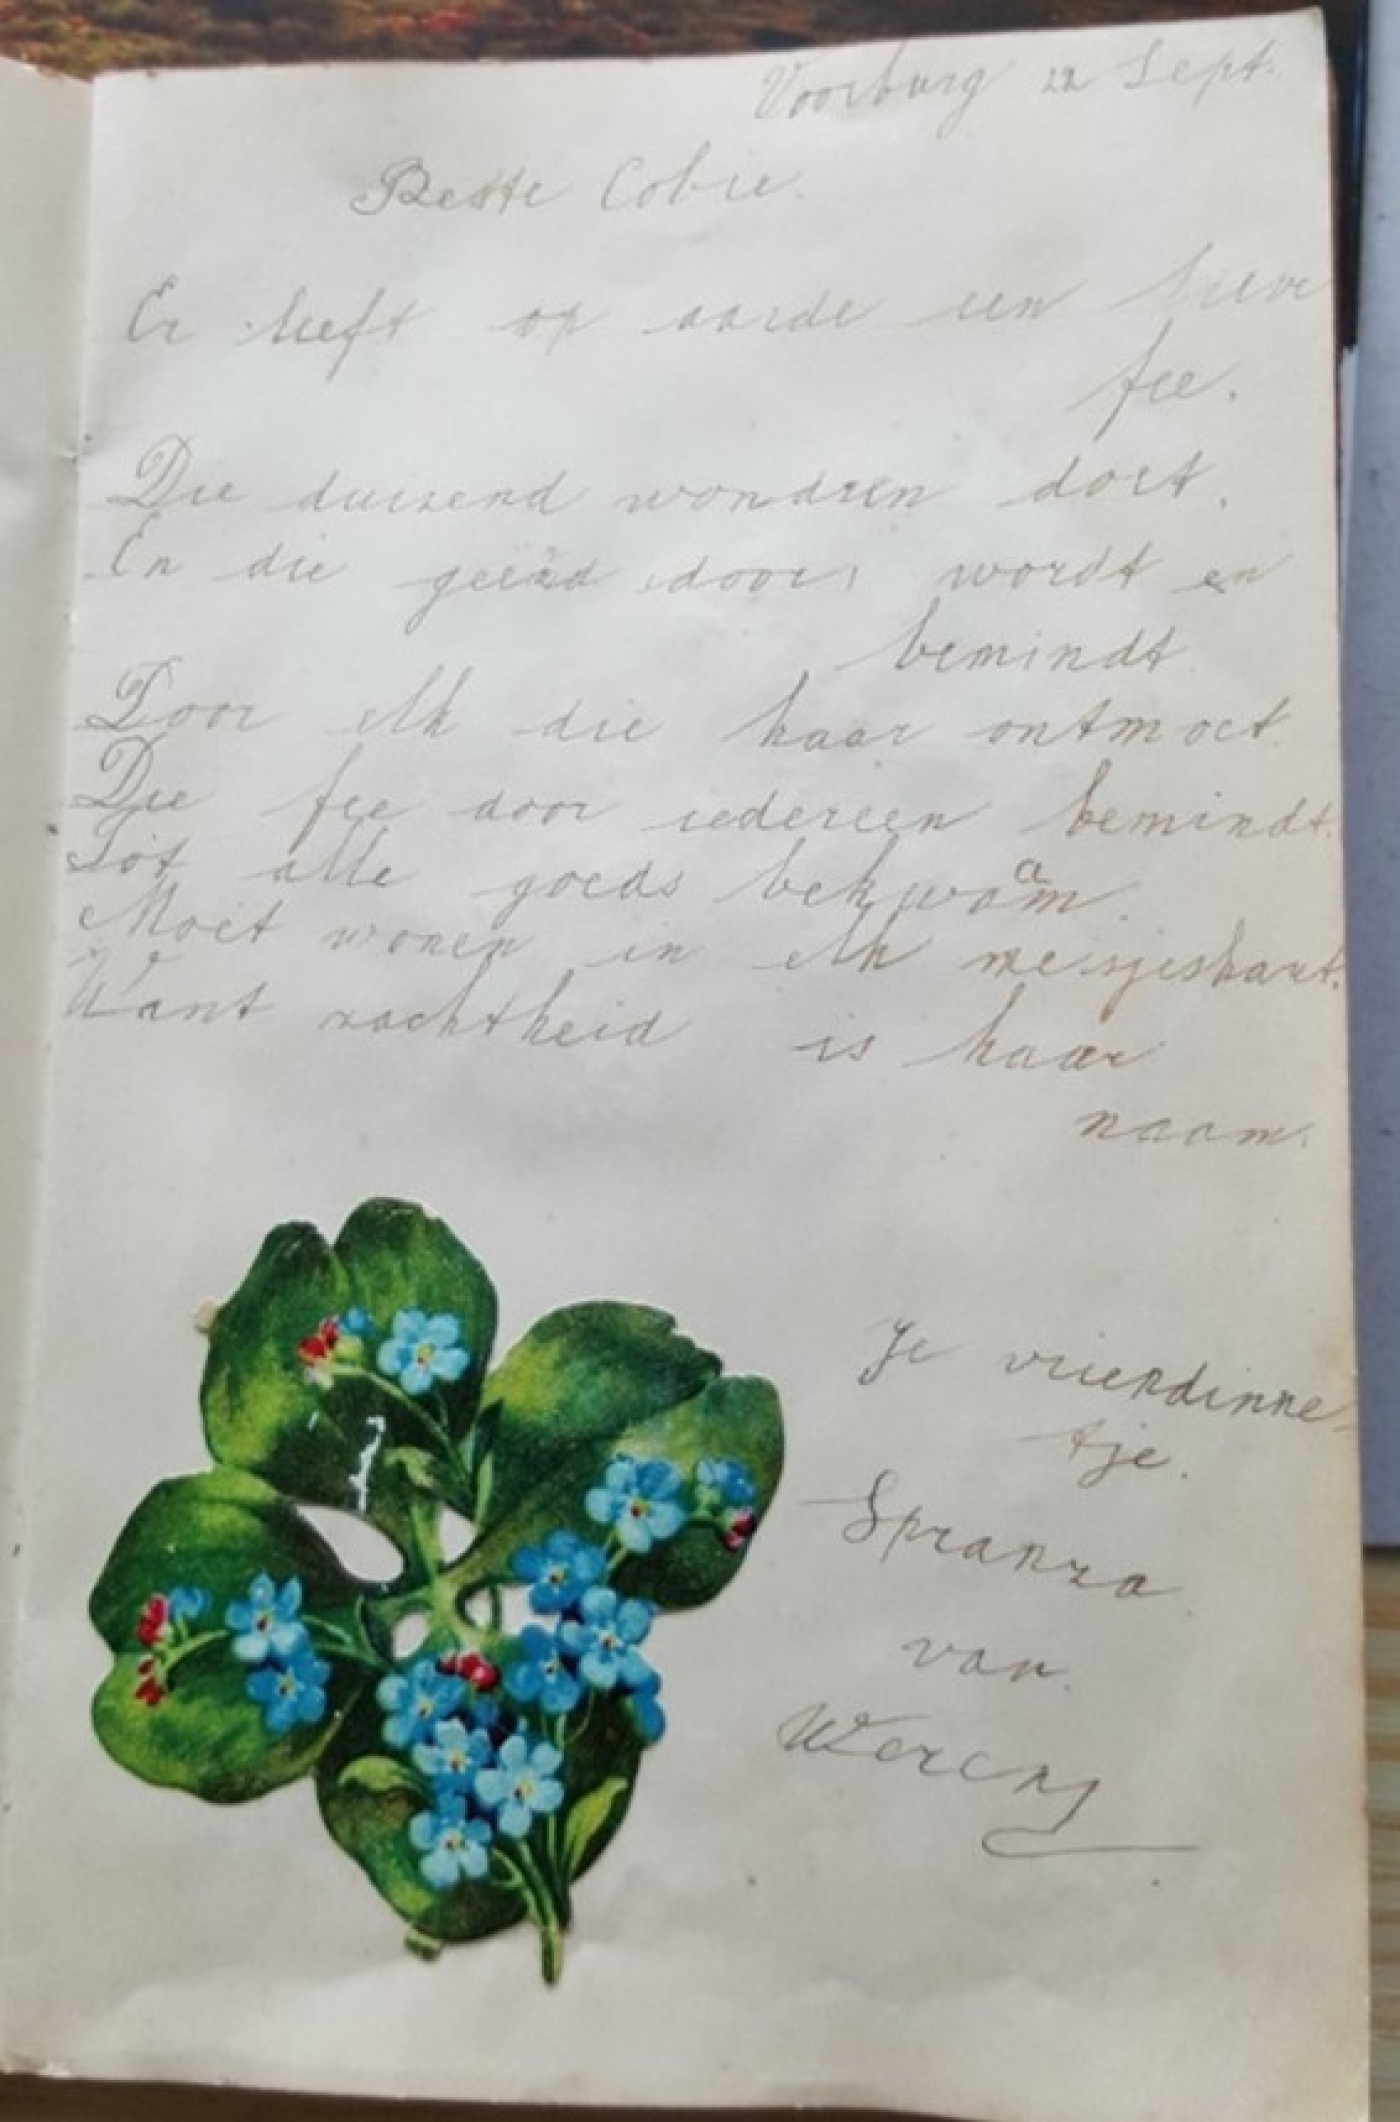 Voorburg 22 Sept.
Beste Cobie.
Er leeft op aarde een lieve
fee.
Die duizend wondren doet.
En die geëerd door wordt en
bemindt
Door elk die haar ontmoet.
Die fee door iedereen bemindt.
Tot alle goeds bekwaam.
Moet wonen in elk mesjeshart.
Want zachtheid is haar
naam.
Je vriendinne
tje.
Spranza
van
Werens